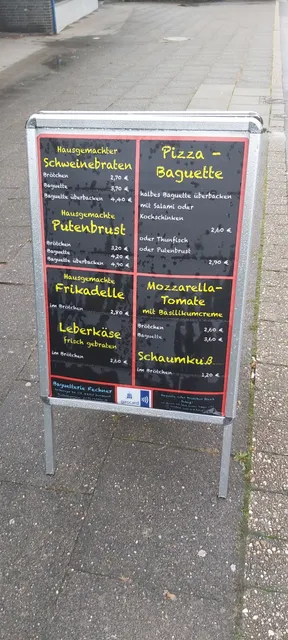 Hausgemachter
Schweinebraten
Brötchen 2,70 €
Baguette 3,70 €
Baguette überbacken 4,40 €
Hausgemachte
Putenbrust
Brötchen 3,20 €
Baguette 4,20 €
Baguette überbacken 4,90 €
Hausgemachte
Frikadelle
im Brötchen 2,80 €
Leberkäse
frisch gebraten
im Brötchen 2,60 €
Pizza -
Baguette
halbes Baguette überbacken
mit Salami oder
Kochschinken
2,60 €
oder Thunfisch
oder Putenbrust
2,90 €
Mozzarella-
Tomate
mit Basilikumcreme
Brötchen 2,60 €
Baguette 3,60 €
Schaumkuß
im Brötchen 1,20 €
Baguetterie Fechner